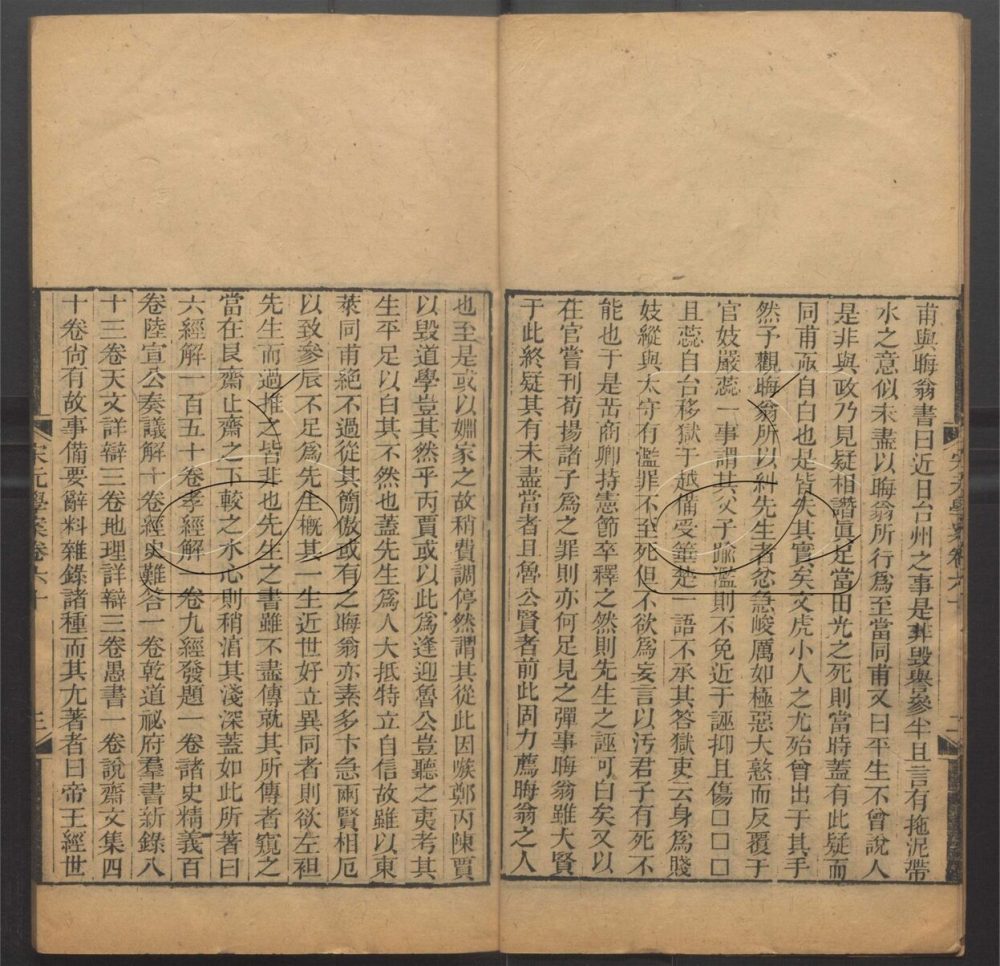 甫與晦翁書曰近日台州之事是非毀譽參半且言有拖泥帶
水之意似未盡以晦翁所行爲至當同甫又曰平生不曾說人
是非與政乃見疑相譖眞足當田光之死則當時蓋有此疑而
同甫亟自白也是皆失其實矣文虎小人之尤殆曾出于其手
然予觀晦翁所以糾先生者忿急峻厲如極惡大憝而反覆于
官妓嚴蕊一事謂其父子踰濫則不免近于誣抑且傷□□□
且蕊自台移獄于越備受箠楚一語不承其答獄吏云身爲賤
妓縱與太守有濫罪不至死但不欲爲妄言以汚君子有死不
能也于是岳商卿持憲節卒釋之然則先生之誣可白矣又以
在官嘗刊荀揚諸子爲之罪則亦何足見之彈事晦翁雖大賢
于此終疑其有未盡當者且魯公賢者前此固力薦晦翁之人
也至是或以婣家之故稍費調停然謂其從此因嗾鄭丙陳賈
以毀道學豈其然乎丙賈或以此爲逢迎魯公豈聽之夷考其
生平足以白其不然也蓋先生爲人大抵特立自信故雖以東
萊同甫絕不過從其簡傲或有之晦翁亦素多卞急兩賢相厄
以致參辰不足爲先生槪其一生近世好立異同者則欲左袒
先生而過推之皆非也先生之書雖不盡傳就其所傳者窺之
當在艮齋止齋之下較之水心則稍淯其淺深蓋如此所著曰
六經解一百五十卷孝經解一卷九經發題一卷諸史精義百
卷陸宣公奏議解十卷經史難答一卷乾道祕府羣書新錄八
十三卷天文詳辯三卷地理詳辯三卷愚書一卷說齋文集四
十卷尙有故事備要辭料雜錄諸種而其尤著者曰帝王經世
宋元學案卷六十
三